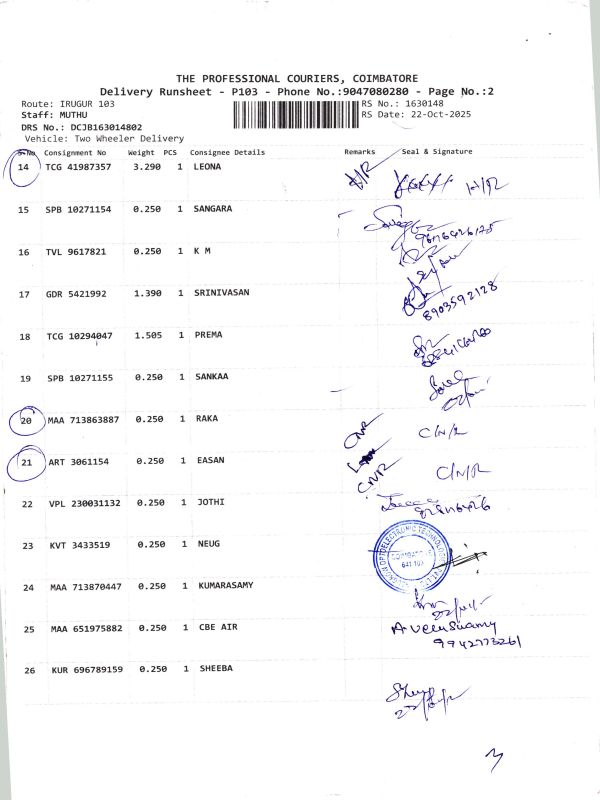 THE PROFESSIONAL COURIERS, COIMBATORE
Delivery Runsheet - P103 - Phone No.:9047080280 - Page No.:2
Route: IRUGUR 103
RS No.: 1630148
Staff: MUTHU
RS Date: 22-Oct-2025
DRS No.: DCJB163014802
Vehicle: Two Wheeler Delivery
S.No Consignment No Weight PCS Consignee Details Remarks Seal & Signature
14 TCG 41987357 3.290 1 LEONA
15 SPB 10271154 0.250 1 SANGARA
16 TVL 9617821 0.250 1 K M
17 GDR 5421992 1.390 1 SRINIVASAN
8903592128
18 TCG 10294047 1.505 1 PREMA
19 SPB 10271155 0.250 1 SANKAA
20 MAA 713863887 0.250 1 RAKA C/N/R
21 ART 3061154 0.250 1 EASAN C/N/R
22 VPL 230031132 0.250 1 JOTHI
23 KVT 3433519 0.250 1 NEUG
24 MAA 713870447 0.250 1 KUMARASAMY
25 MAA 651975882 0.250 1 CBE AIR
9942773261
26 KUR 696789159 0.250 1 SHEEBA